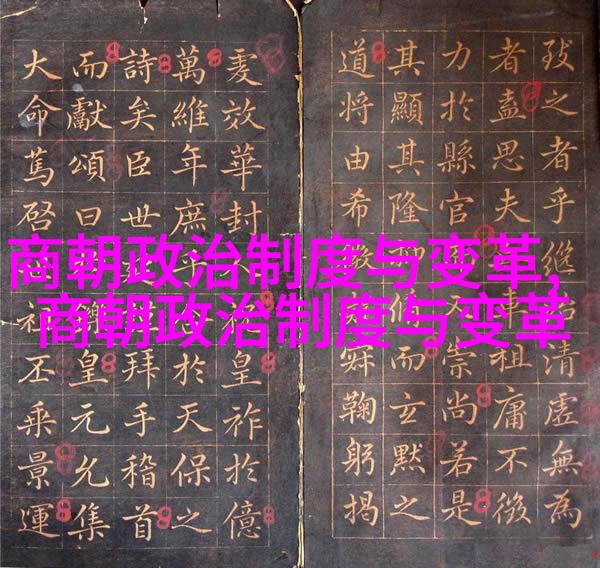 商朝政治制度与变革,
商朝政治制度与变革
之者乎清虛無為
者盍思夫車祖庸不
力於縣官不崇尚若是
其顯其隆抑而玄默之
道將由希鞠躬揭
效華封皇祚於億
萬維年庶於天保之
詩矣臣世拜手稽首
而獻頌曰皇元允集
大命篤啓丕乘景運